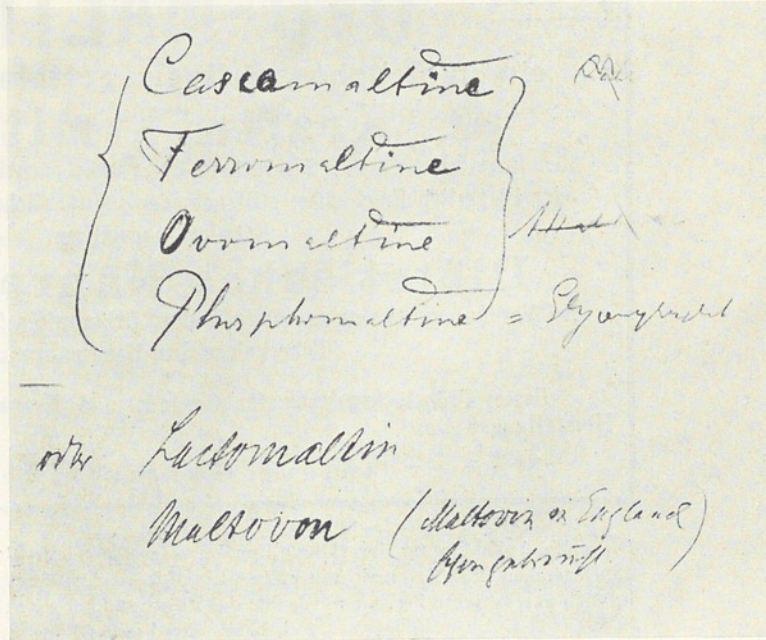 Cascamaltine
Ferromaltine
Ovomaltine
Phosphomaltine =
oder Lactomaltin
Maltovon (Maltovin in England